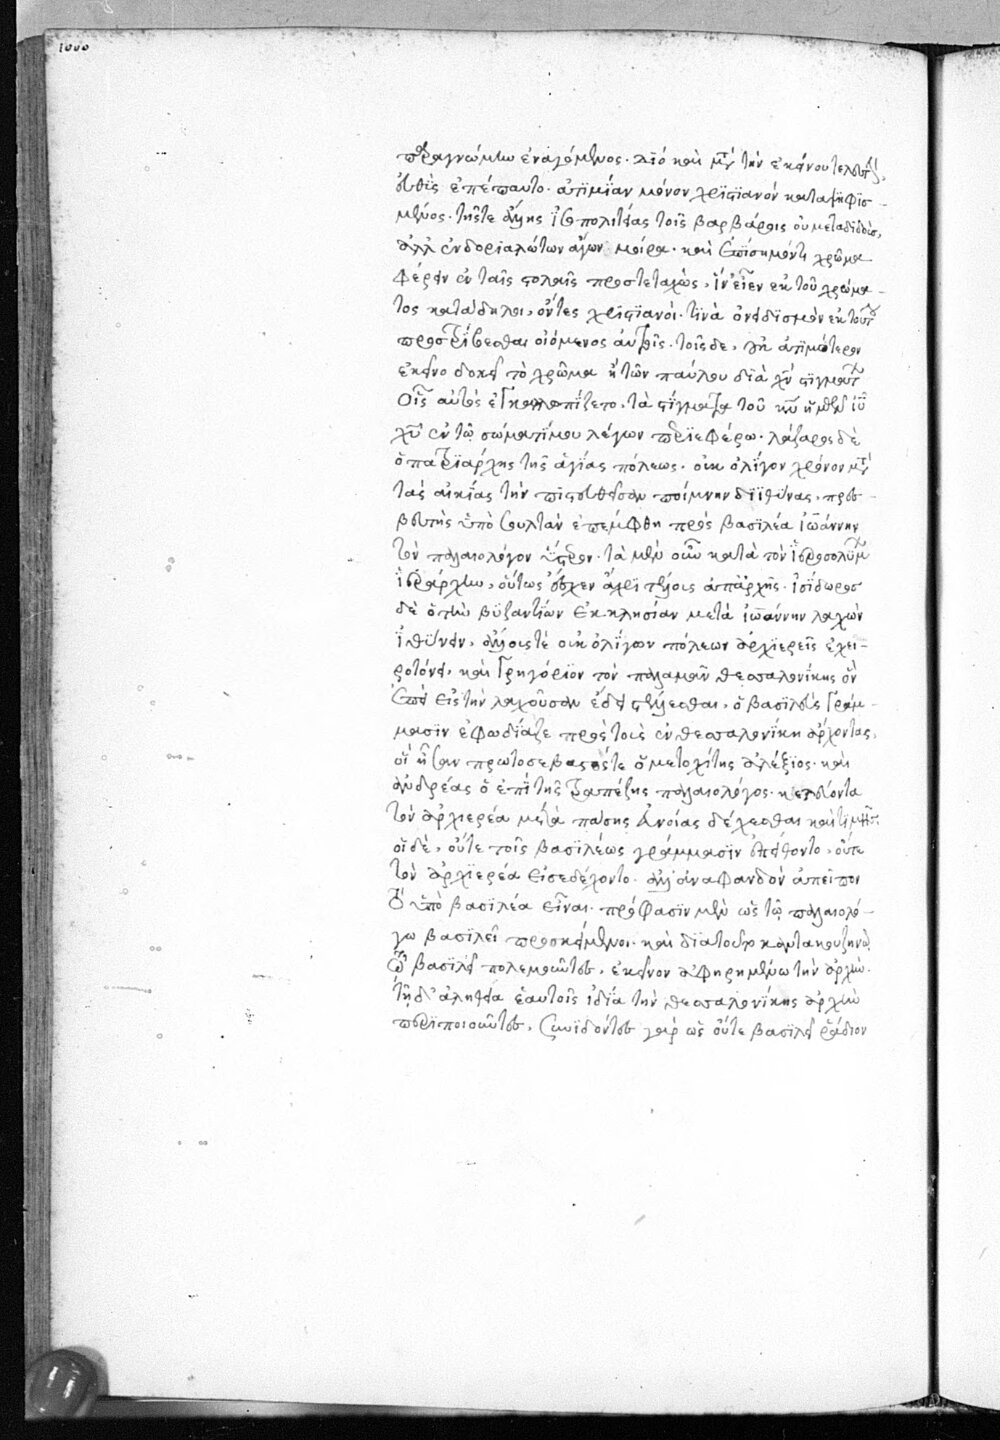 1000
παραγνώμην ἐναγόμενος. διό καὶ μετὰ τὴν ἐκείνου τελευτήν,
εὐθὺς ἐπέπαυτο. ἀτιμίαν μόνον χριστιανόν καταψηφισ-
μένος. τῆς τε ἄλλης ἰσοπολιτείας τοῖς βαρβάροις οὐ μεταδιδούς,
ἀλλ ἐν δοριαλώτων ἄγων μοίρα. καὶ ἐπίσημόν τι χρῶμα
φέρειν ἐν ταῖς στολαῖς προστεταχὼς, ἵν' εἶεν ἐκ τοῦ χρώμα-
τος κατάδηλοι, ὄντες χριστιανοί. τινὰ ὀνειδισμὸν ἐκ τούτου
προστρίβεσθαι οἰόμενος αὐτοῖς. τοῖς δε,
ἐκεῖνο δοκεῖ τὸ χρῶμα ἢ τῶν παύλου διὰ χν στιγμάτων
οἷς αὐτός ἐγκαλλωπίζετο, τὰ στίγματα τοῦ κυ ἡμῶν ιυ
χυ ἐν τῶ σώματί μου λέγων περιφέρω. λάζαρος δὲ
ὁ πατριάρχης τῆς ἁγίας πόλεως. οὐκ ὀλίγον χρόνον μετὰ
τὰς αἰκίας τὴν πιστευθεῖσαν ποίμνην διιθύνας, πρεσ-
βευτὴς ὑπὸ σουλτὰν ἐπέμφθη πρὸς βασιλέα ἰωάννην
τὸν παλαιολόγον ὕστερον. τὰ μὲν οὖν κατὰ τὸν ἱεροσολύμων
ἱεράρχην, οὕτως ἔσχεν ἄχρι τέλους ἀπαρχῆς. ἰσίδωρος
δὲ ὁ τὴν βυζαντίων ἐκκλησίαν μετὰ ἰωάννην λαχὼν
ἰθύνειν, ἄλλοις τὲ οὐκ ὀλίγων πόλεων ἀρχιερεῖς ἐχει-
ροτόνει, καὶ γρηγόριον τὸν παλαμᾶν θεσσαλονίκης ὃν
ἐπεὶ εἰς τὴν λαχοῦσαν ἔδει στέλλεσθαι, ὁ βασιλεὺς γράμ-
μασιν ἐφωδίαζε πρὸς τοὺς ἐν θεσσαλονίκη ἄρχοντας,
οἳ ἦσαν πρωτοσεβαστός τε ὁ μετοχίτης ἀλέξιος. καὶ
ἀνδρέας ὁ ἐπὶ τῆς τραπέζης παλαιολόγος. κελεύοντα
τὸν ἀρχιερέα μετὰ πάσης εὐνοίας δέχεσθαι καὶ τιμῆς.
οἱ δὲ, οὔτε τοῖς βασιλέως γράμμασιν ἐπείθοντο, οὔτε
τὸν ἀρχιερέα εἰσεδέχοντο. ἀλλ' ἀναφανδὸν ἀπεῖπον
τὸ ὑπὸ βασιλέα εἶναι. πρόφασιν μὲν ὡς τῶ παλαιολό-
γω βασιλεῖ προσκείμενοι. καὶ διατοῦτο καντακουζηνῶ
τῶ βασιλεῖ πολεμοῦντες, ἐκεῖνον ἀφηρημένω τὴν ἀρχήν.
τῆ δ' ἀληθεία ἑαυτοῖς ἰδία τὴν θεσσαλονίκης ἀρχὴν
περιποιοῦντες, συνιδόντες γὰρ ὡς οὔτε βασιλεῖ ῥάδιον